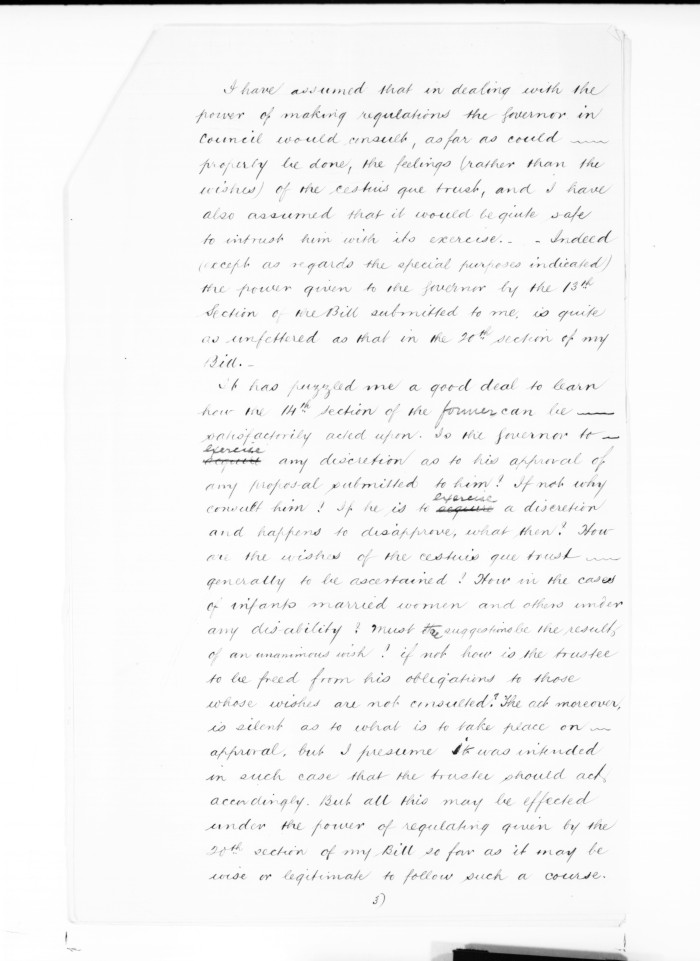 I have assumed that in dealing with the
power of making regulations the Governor in
Council would consult, as far as could
properly be done, the feelings (rather than the
wishes) of the cestuis que trust, and I have
also assumed that it would be quite safe
to intrust him with its exercise. - - Indeed
(except as regards the special purposes indicated)
the power given to the Governor by the 13th
Section of the Bill submitted to me, is quite
as unfettered as that in the 20th section of my
Bill. -
It has puzzled me a good deal to learn
how the 14th section of the former can be
satisfactorily acted upon. Is the Governor to
exercise
acquire any discretion as to his approval of
any proposal submitted to him! If not why
consult him! If he is to
exercise
acquire a discretion
and happens to disapprove, what then! How
are the wishes of the cestuis que trust
generally to be ascertained! How in the cases
of infants married women and others under
any disability? Must the suggestions be the result
of an unanimous wish! if not how is the trustee
to be freed from his obligations to those
whose wishes are not consulted? The act moreover,
is silent as to what is to take place on
approval, but I presume it was intended
in such case that the trustee should act
accordingly. But all this may be effected
under the power of regulating given by the
20th section of my Bill so far as it may be
wise or legitimate to follow such a course.
3)